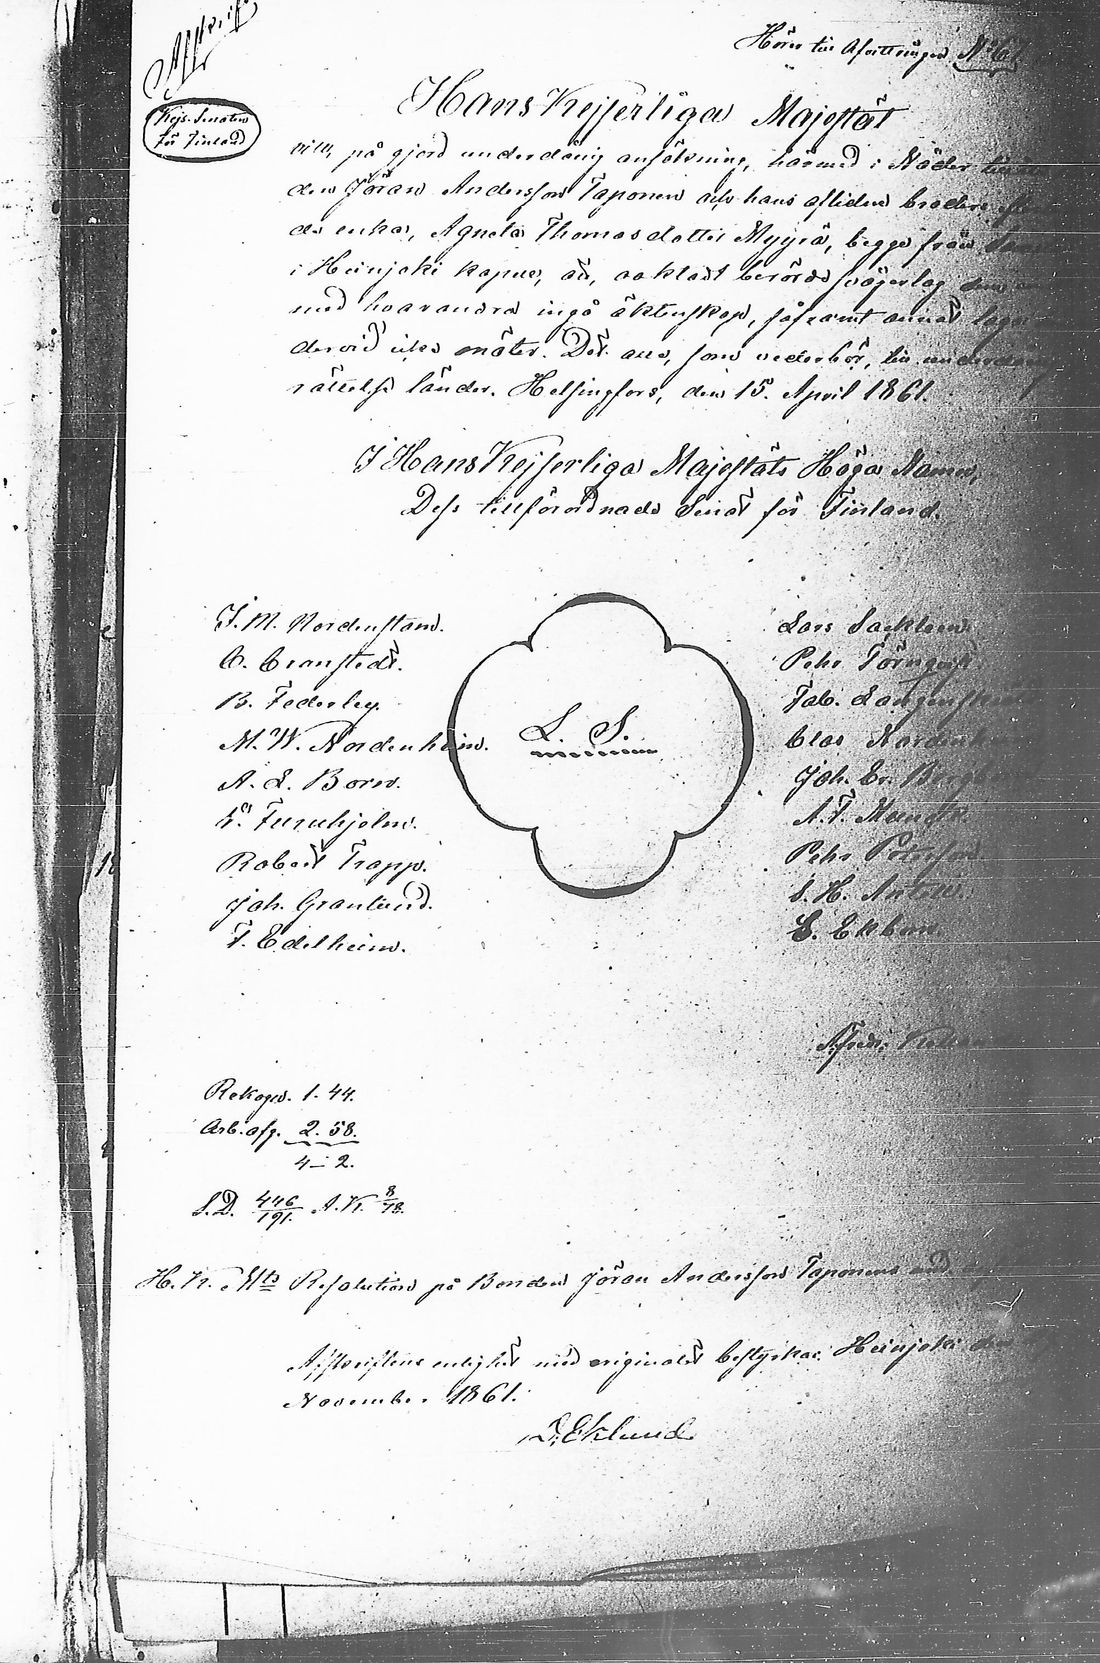 Afskrift
Hörer till Afvittringen N:o 6
Kejs. Senaten
för Finland
Hans Kejserliga Majestät
vill, på gjord underdånig ansökning, härmed i Nåder
den Jöran Andersson Taponen och hans aflidne broders
enka, Agneta Thomasdotter Myyrä, begge från
i Heinjoki kapell, att, oaktadt berörde svågerlag dem
med hvarandra ingå äktenskap, såframt annat laga
dervid icke möter. Det alle, som vederbör, till underdånig
rättelse länder. Helsingfors, den 15. April 1861.
I Hans Kejserliga Majestäts Höga Namn,
Dess tillförordnade Senat för Finland.
J. M. Nordenstam.
C. Cronstedt.
B. Federley.
M. W. Nordenheim.
A. L. Born.
Furuhjelm.
Robert Trapp.
Joh. Granlund.
F. Edelheim.
L. S.
Lars Sackleen.
Pehr Törnqvist.
Fab. Langenskiöld
Clas Nordenheim
Joh. Er. Bergbom
A. F. Munck.
Pehr Peterson.
S. H. Antell.
E. Ekbom
Alfred Kihlman
Rekogn. 1. 44.
Arb. afg. 2. 58.
4 – 2.
S.D. 446/191. A.K. 8/78.
H. K. Mts Resolution på Bonden Jöran Andersson Taponens
Afskriftens enlighet med originalet bestyrkas; Heinjoki den
November 1861.
D. Eklund